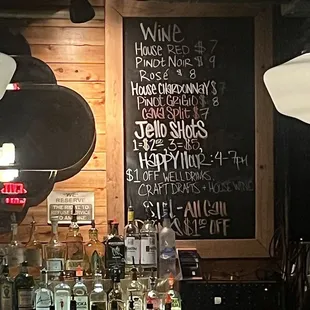 Wine
House RED $7
Pinot Noir $9
Rosé $8
House Chardonnay $7
Pinot Grigio $8
Cava Split $7
Jello Shots
1=$2 3=$5
Happy Hour: 4-7pm
$1 OFF WELL DRINKS,
CRAFT DRAFTS + HOUSE WINE
All Call
$1 OFF
WE RESERVE
THE RIGHT TO